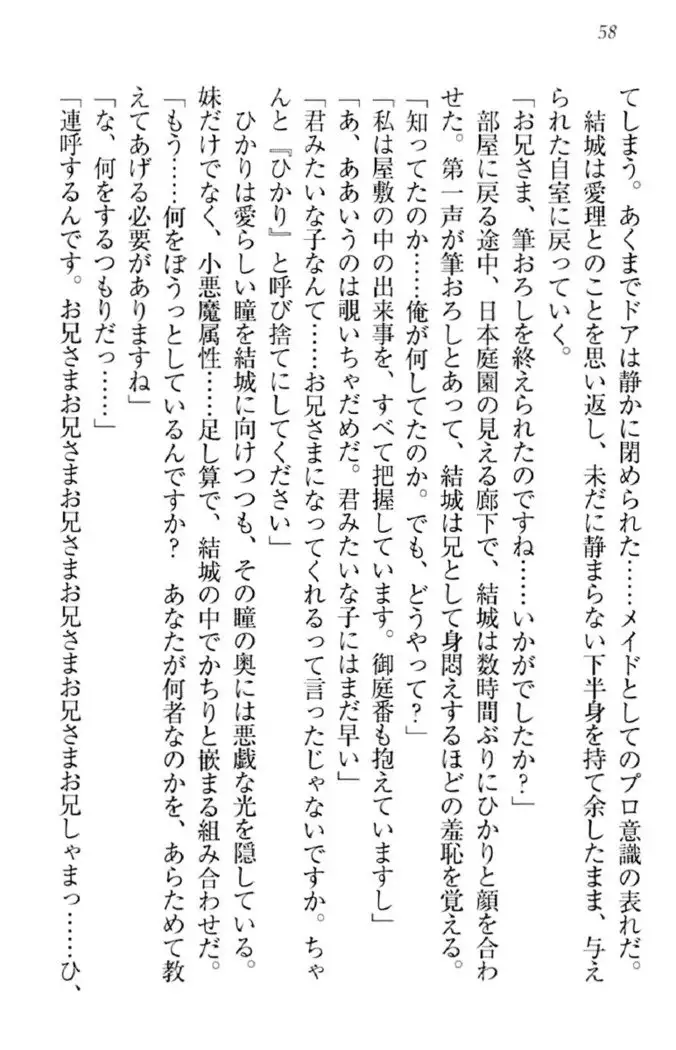 58
てしまう。あくまでドアは静かに閉められた……メイドとしてのプロ意識の表れだ。
結城は愛理とのことを思い返し、未だに静まらない下半身を持て余したまま、与え
られた自室に戻っていく。
「お兄さま、筆おろしを終えられたのですね……いかがでしたか？」
部屋に戻る途中、日本庭園の見える廊下で、結城は数時間ぶりにひかりと顔を合わ
せた。第一声が筆おろしとあって、結城は兄として身悶えするほどの羞恥を覚える。
「知ってたのか……俺が何してたのか。でも、どうやって？」
「私は屋敷の中の出来事を、すべて把握しています。御庭番も抱えていますし」
「あ、ああいうのは覗いちゃだめだ。君みたいな子にはまだ早い」
「君みたいな子なんて……お兄さまになってくれるって言ったじゃないですか。ちゃ
んと『ひかり』と呼び捨てにしてください」
ひかりは愛らしい瞳を結城に向けつつも、その瞳の奥には悪戯な光を隠している。
妹だけでなく、小悪魔属性……足し算で、結城の中でかちりと嵌まる組み合わせだ。
「もう……何をぼうっとしているんですか？　あなたが何者なのかを、あらためて教
えてあげる必要がありますね」
「な、何をするつもりだっ……」
「連呼するんです。お兄さまお兄さまお兄さまお兄さまお兄さまお兄しゃまっ……ひ、